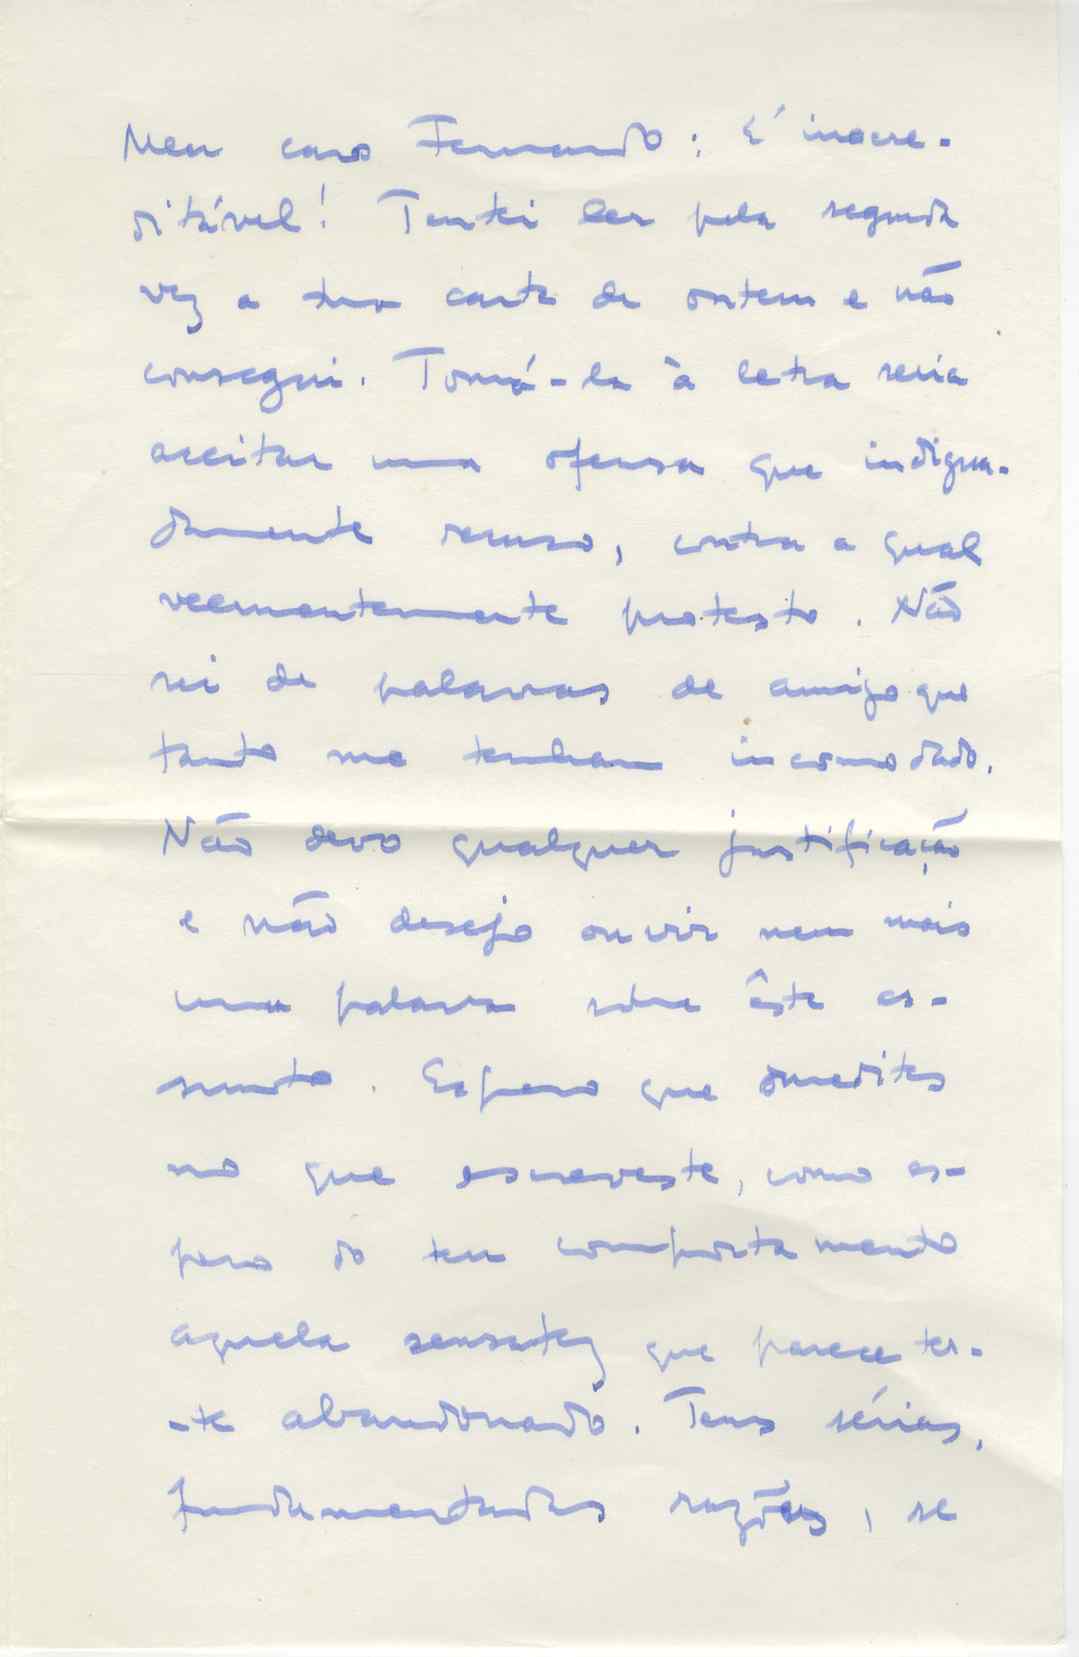 Meu caro Fernando: É inacre-
ditável! Tentei ler pela segunda
vez a tua carta de ontem e não
consegui. Tomá-la à letra seria
aceitar uma ofensa que indigna-
damente recuso, contra a qual
veementemente protesto. Não
sei de palavras de amigo que
tanto me tenham incomodado.
Não devo qualquer justificação
e não desejo ouvir nem mais
uma palavra sobre êste as-
sunto. Espero que medites
no que escreveste, como es-
pero do teu comportamento
aquela sensatez que parece ter-
-te abandonado. Tens sérias,
fundamentadas razões, se